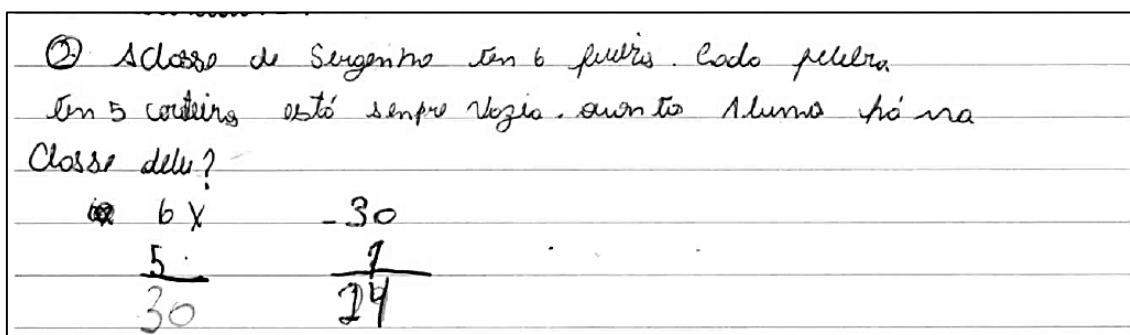 ② A classe de Serginho ten 6 fileiris. Cada fileira
ten 5 carteiras está senpre vazia. quanto Aluno há na
Classe dele?
6 X - 30
5 1
30 24